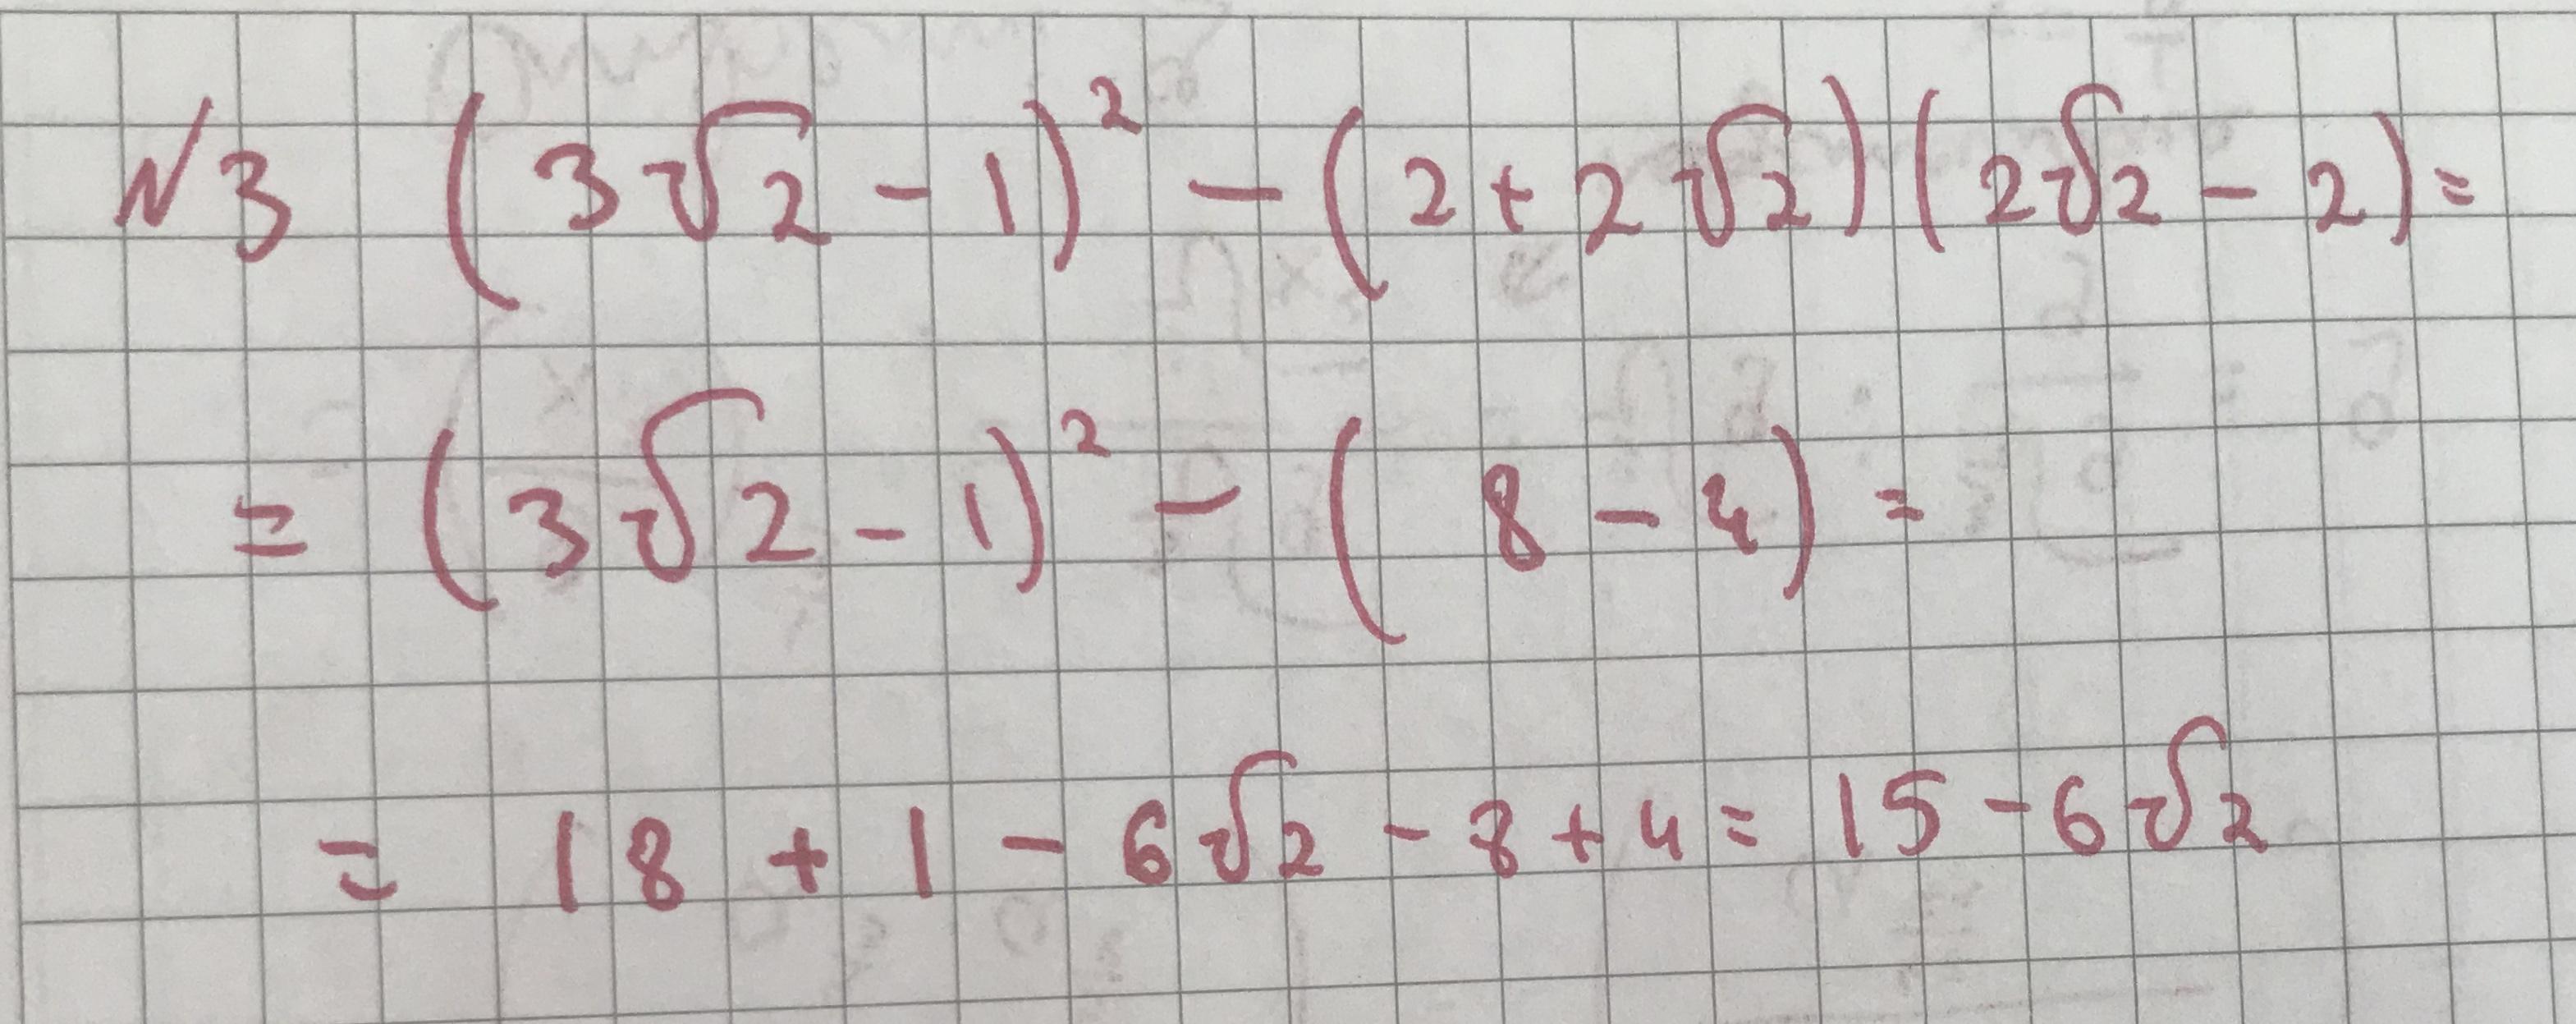 №3 (3√2 - 1)² - (2 + 2√2)(2√2 - 2) =
= (3√2 - 1)² - (8 - 4) =
= 18 + 1 - 6√2 - 8 + 4 = 15 - 6√2